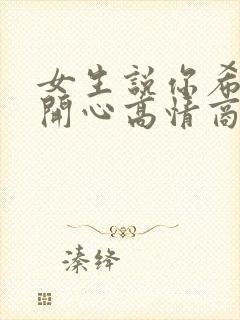 女生説你希
開心高情商
溱绛